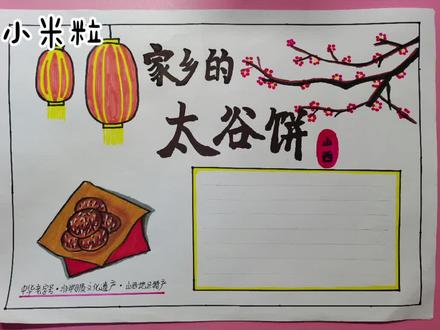 小米粒
家乡的
太谷饼
山西
中华老字号·非物质文化遗产·山西地区特产